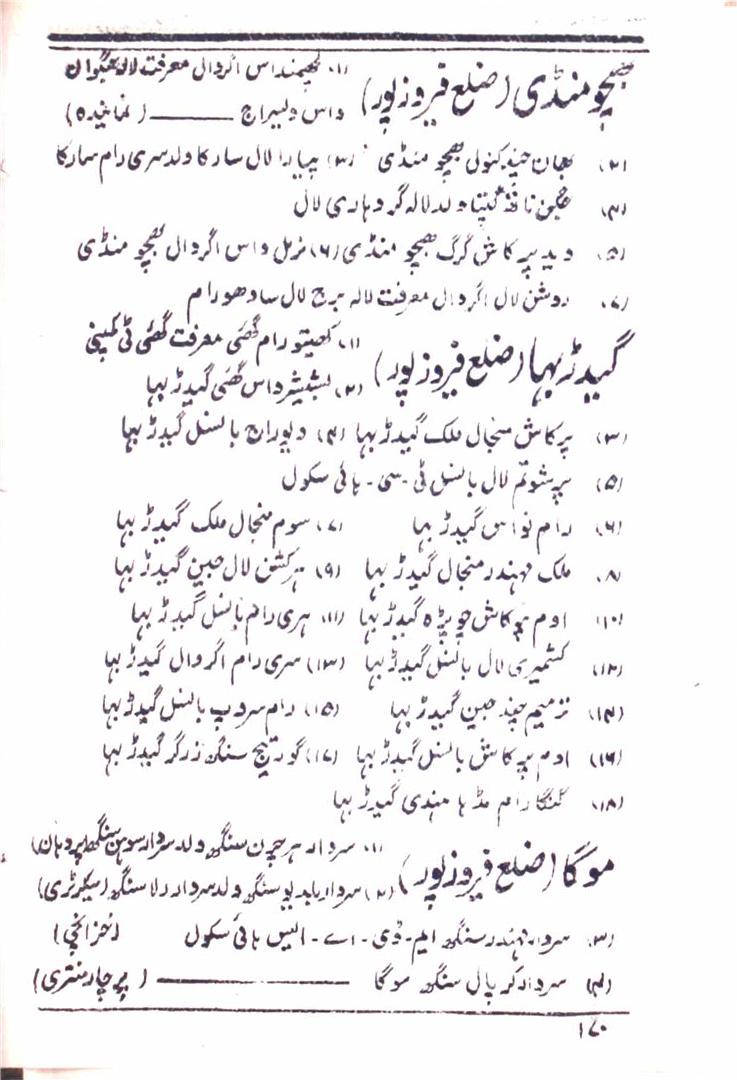 بھچو منڈی (ضلع فیروز پور) (۱) لچھمنداس اگروال معرفت لالہ بھگوان
داس دلسیراج ——— (نمائندہ)
(۲) بھان چند کنولی بھچو منڈی (۳) پیارا لال سارکا ولد سری رام سارکا
(۴) گپتا ولد لالہ گردہاری لال
(۵) وید پرکاش گرگ بھچو منڈی (۶) نرمل داس اگروال بھچو منڈی
(۷) روشن لال اگروال معرفت لالہ برج لال سادھو رام
گیدڑ بہا (ضلع فیروز پور) (۱) کھیتو رام گھئی معرفت گھئی ٹی کمپنی
(۲) بشیشر داس گھئی گیدڑ بہا
(۳) پرکاش منجال ملک گیدڑ بہا (۴) دیوراج بانسل گیدڑ بہا
(۵) پرشوتم لال بانسل ٹی۔سی۔ہائی سکول
(۶) رام نواس گیدڑ بہا (۷) سوم منجال ملک گیدڑ بہا
(۸) ملک مہندر منجال گیدڑ بہا (۹) ہرکشن لال جین گیدڑ بہا
(۱۰) اوم پرکاش چوپڑہ گیدڑ بہا (۱۱) ہری رام بانسل گیدڑ بہا
(۱۲) کشمیری لال بانسل گیدڑ بہا (۱۳) سری رام اگروال گیدڑ بہا
(۱۴) ترمیم چند جین گیدڑ بہا (۱۵) رام سروپ بانسل گیدڑ بہا
(۱۶) اوم پرکاش بانسل گیدڑ بہا (۱۷) گور تیج سنگھ زرگر گیدڑ بہا
(۱۸) گنگا رام مڈہا مندی گیدڑ بہا
موگا (ضلع فیروز پور) (۱) سردار ہرچرن سنگھ ولد سردار سوہن سنگھ (پردہان)
(۲) سردار بلدیو سنگھ ولد سردار رلا سنگھ (سیکرٹری)
(۳) سردار مہندر سنگھ ایم۔ڈی۔اے۔ایس ہائی سکول (خزانچی)
(۴) سردار کرپال سنگھ موگا ——— (پرچار منتری)
۱۷۰